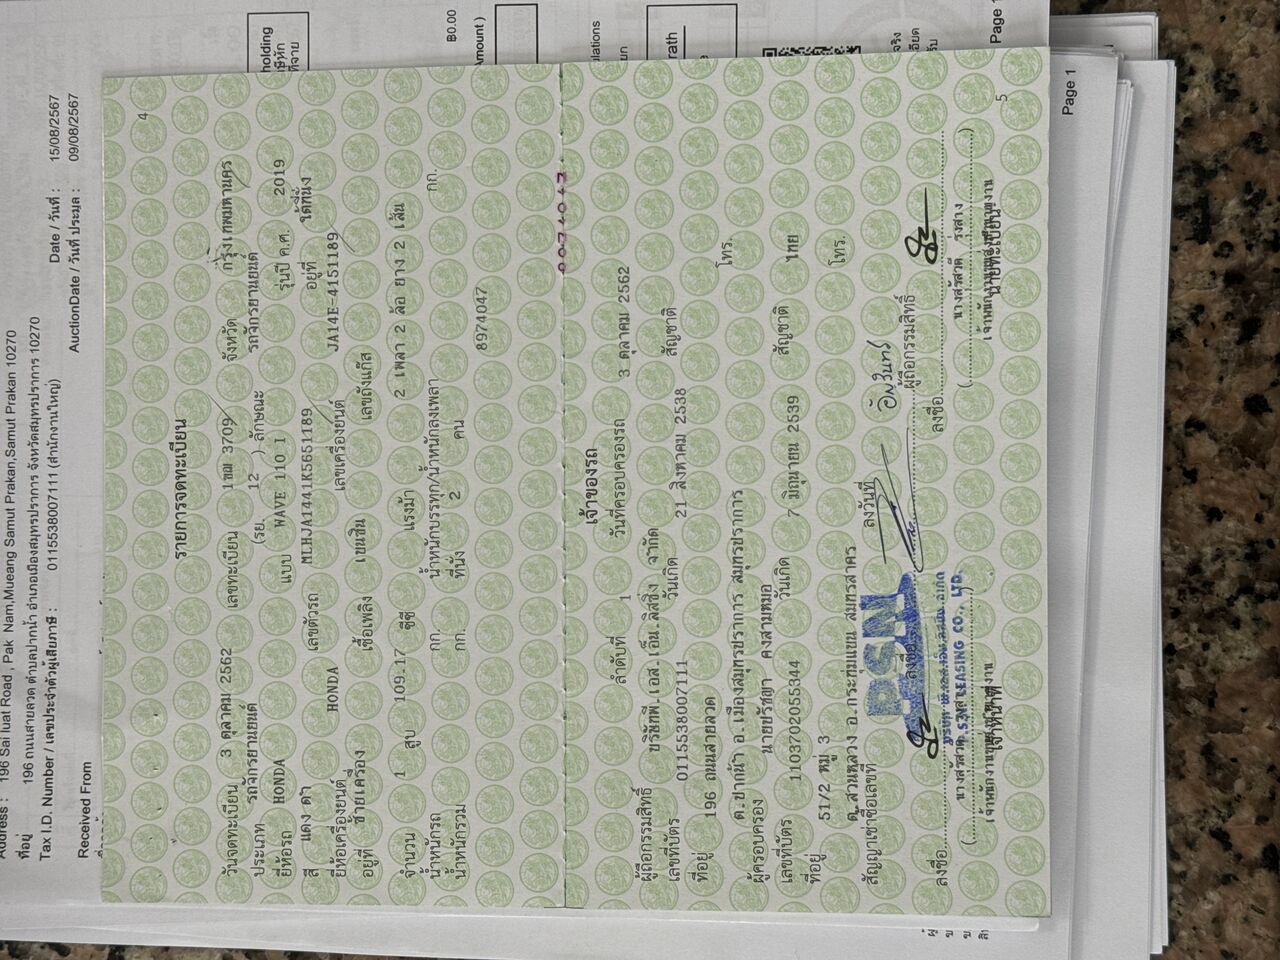 Address : 196 Sai luat Road , Pak Nam,Mueang Samut Prakan,Samut Prakan 10270
ที่อยู่ 196 ถนนสายลวด ตำบลปากน้ำ อำเภอเมืองสมุทรปราการ จังหวัดสมุทรปราการ 10270
Tax I.D. Number / เลขประจำตัวผู้เสียภาษี : 0115538007111 (สำนักงานใหญ่)
Date / วันที่ : 15/08/2567
AuctionDate / วันที่ ประมูล : 09/08/2567
Received From
4
รายการจดทะเบียน
วันจดทะเบียน 3 ตุลาคม 2562 เลขทะเบียน 3709 จังหวัด กรุงเทพมหานคร
ประเภท รถจักรยานยนต์ (รย. 12 ) ลักษณะ รถจักรยานยนต์
ยี่ห้อรถ HONDA แบบ WAVE 110 I รุ่นปี ค.ศ. 2019
สี แดง ดำ เลขตัวรถ MLHJA1441K5651189 อยู่ที่ ใต้ที่นั่ง
ยี่ห้อเครื่องยนต์ HONDA เลขเครื่องยนต์ JA14E-4151189
อยู่ที่ ซ้ายเครื่อง เชื้อเพลิง เบนซิน เลขถังแก๊ส
จำนวน 1 สูบ 109.17 ซีซี แรงม้า 2 เพลา 2 ล้อ ยาง 2 เส้น
น้ำหนักรถ กก. น้ำหนักบรรทุก/น้ำหนักลงเพลา กก.
น้ำหนักรวม กก. ที่นั่ง 2 คน
8974047
เจ้าของรถ
ลำดับที่ 1 วันที่ครอบครองรถ 3 ตุลาคม 2562
ผู้ถือกรรมสิทธิ์ บริษัทพี.เอส.เอ็น.ลิสซิ่ง จำกัด
เลขที่บัตร 0115538007111 วันเกิด 21 สิงหาคม 2538 สัญชาติ
ที่อยู่ 196 ถนนสายลวด
ต.ปากน้ำ อ.เมืองสมุทรปราการ สมุทรปราการ โทร.
ผู้ครอบครอง นายปรัชญา คงสามหมอ
เลขที่บัตร 1103702055344 วันเกิด 7 มิถุนายน 2539 สัญชาติ ไทย
ที่อยู่ 51/2 หมู่ 3
ต.สวนหลวง อ.กระทุ่มแบน สมุทรสาคร โทร.
สัญญาเช่าซื้อเลขที่ ลงวันที่
PSN
ลงชื่อ ผู้ถือกรรมสิทธิ์
LEASING CO., LTD.
ลงชื่อ
เจ้าหน้าที่
ลงชื่อ
นายทะเบียน
5
Page 1
Page 1
฿0.00